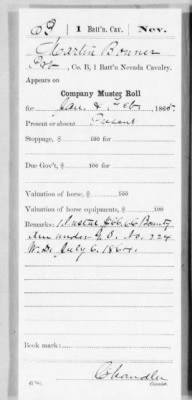 B | 1 Batt'n. Cav. | Nev.
Charles Bonner
Pvt, Co. B, 1 Batt'n Nevada Cavalry.
Appears on
Company Muster Roll
for Jan. & Feb, 1865.
Present or absent Present
Stoppage, $ 100 for
Due Gov't, $ 100 for
Valuation of horse, $ 100
Valuation of horse equipments, $ 100
Remarks: 1 Instal $66.66 Bounty
due under G.O. No. 224
W.D. July 6. 1864.
Book mark:
Chandler
Copyist.